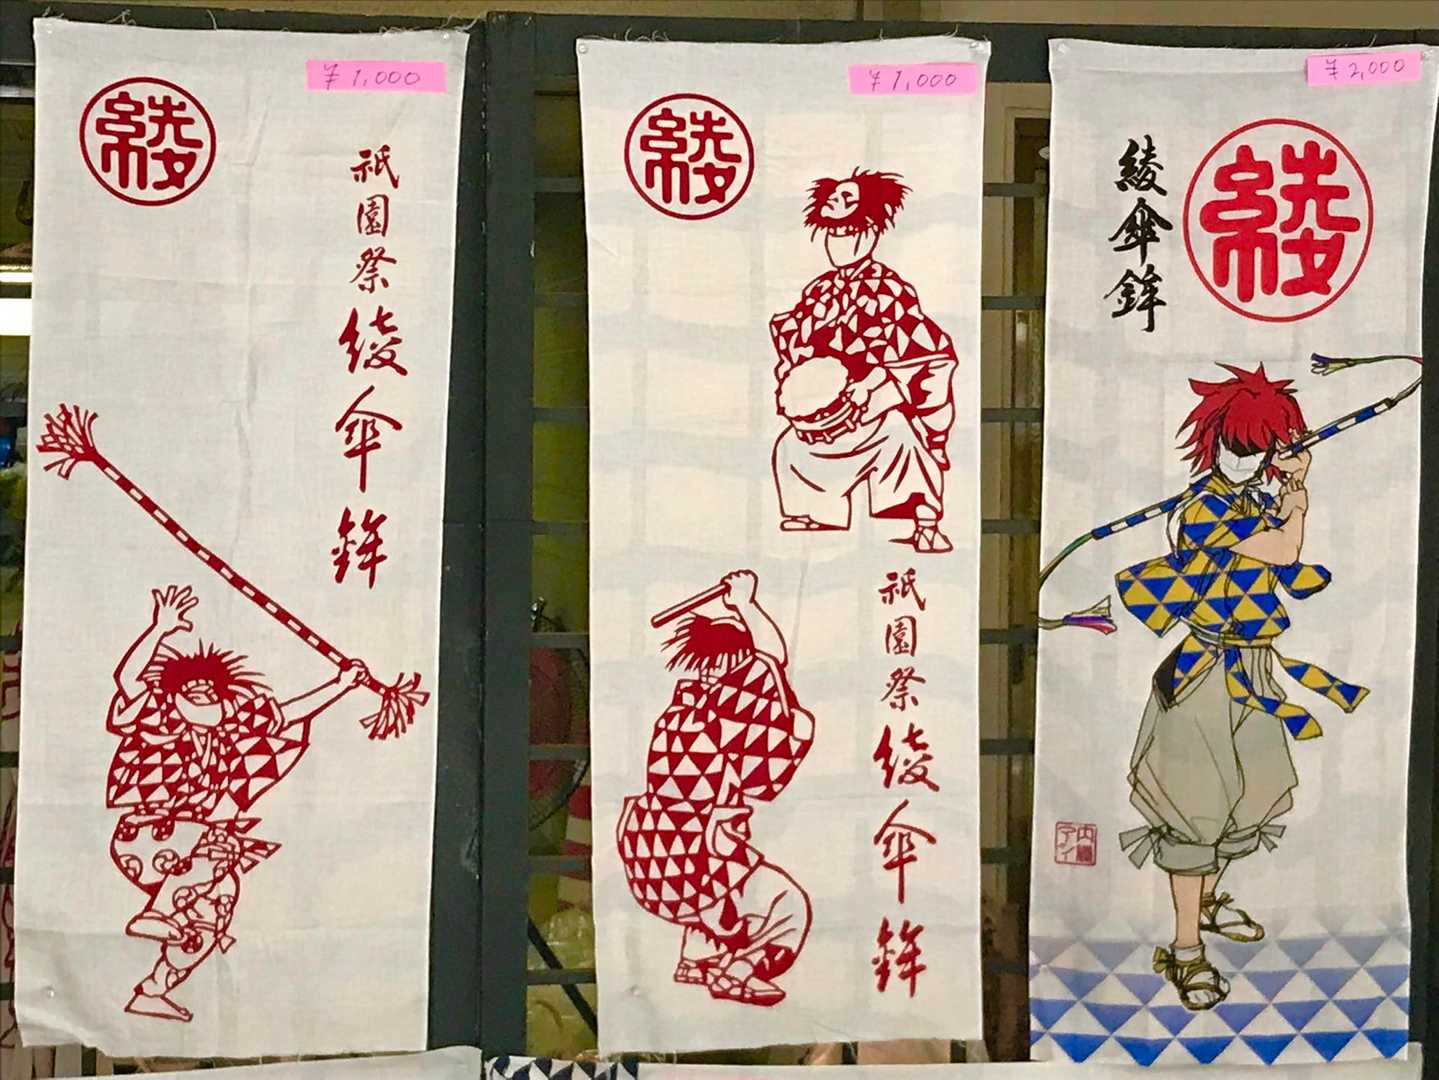 ¥1,000
綾
祇園祭綾傘鉾
¥1,000
綾
祇園祭綾傘鉾
¥2,000
綾
綾傘鉾